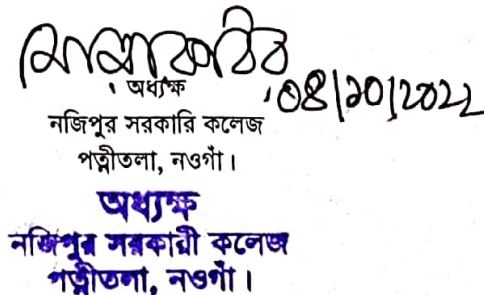 ০৪|১০|২০২২
অধ্যক্ষ
নজিপুর সরকারি কলেজ
পত্নীতলা, নওগাঁ।
অধ্যক্ষ
নজিপুর সরকারী কলেজ
পত্নীতলা, নওগাঁ।